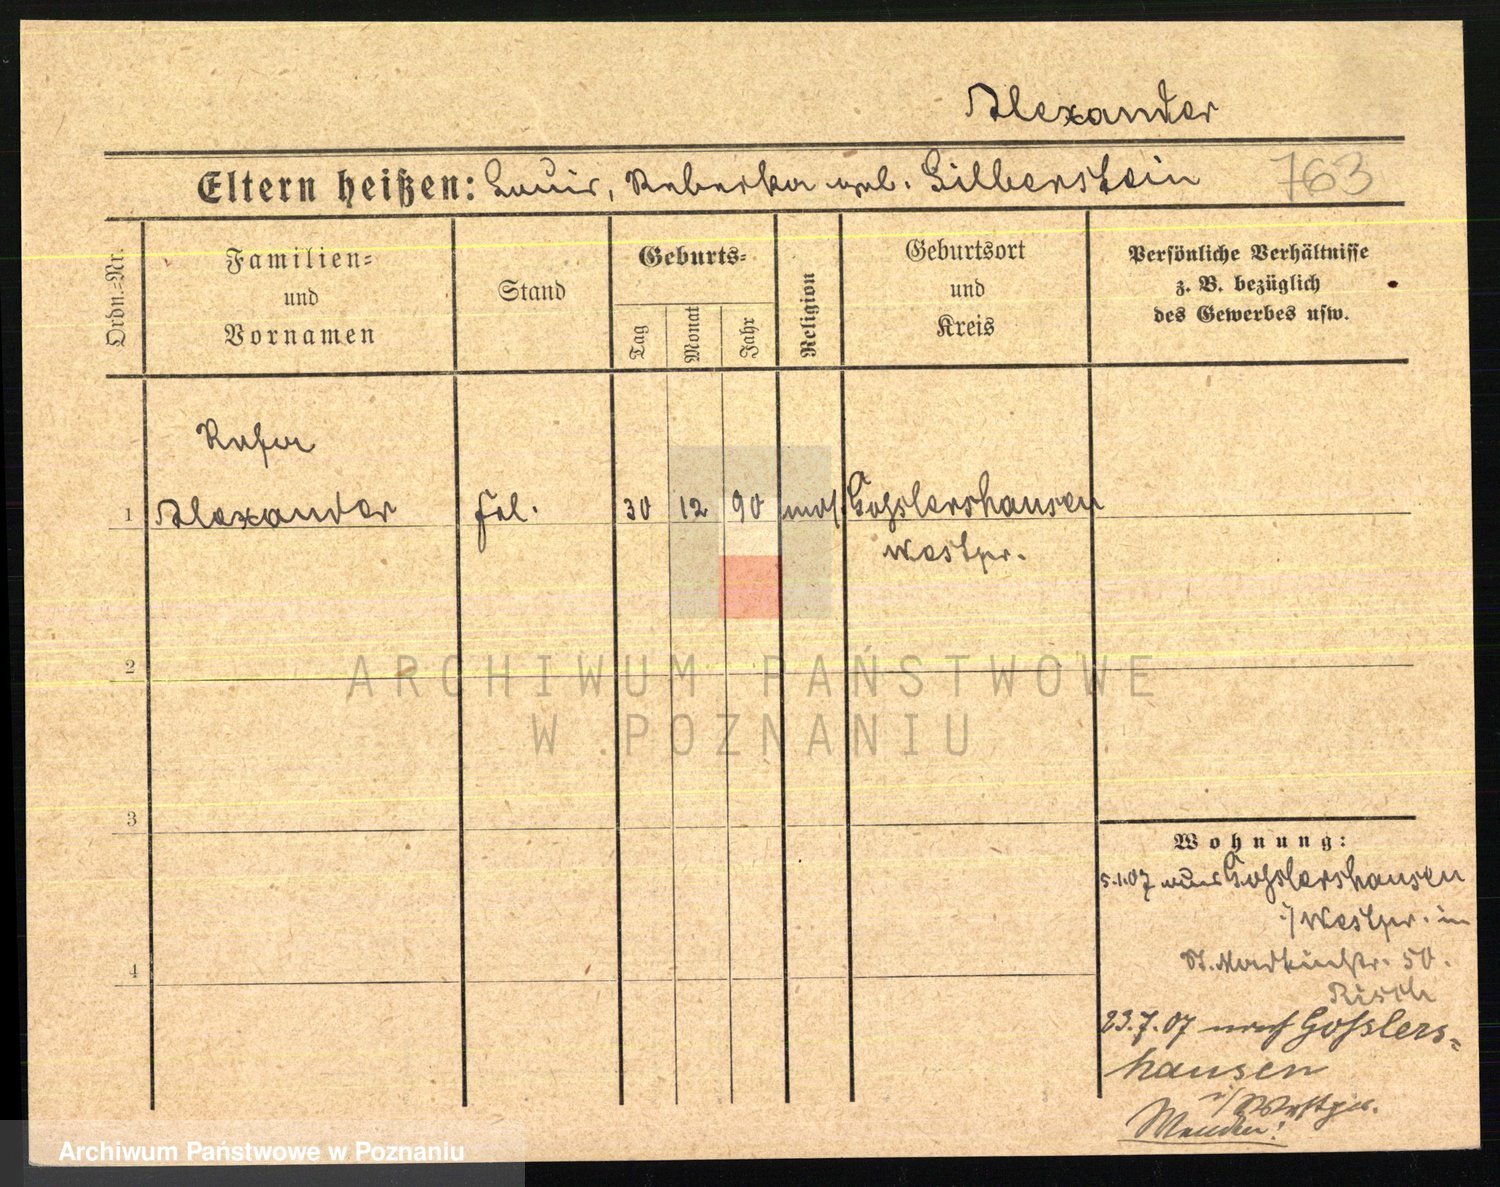 Alexander
Eltern heißen: Louis, Rebecka geb. Silberstein 763
Ordn.=Nr.
Familien=
und
Vornamen
Stand
Geburts=
Tag
Monat
Jahr
Religion
Geburtsort
und
Kreis
Persönliche Verhältnisse
z. B. bezüglich
des Gewerbes usw.
Rosa
1 Alexander Frl. 30 12 90 mos. Gosslershausen
Westpr.
2
3
4
Wohnung:
5.1.07 aus Gosslershausen
i/Westpr. in
St. Martinstr. 50.
Risch
23.7.07 nach Gosslers=
hausen
i/Westpr.
ARCHIWUM PAŃSTWOWE
W POZNANIU
Archiwum Państwowe w Poznaniu